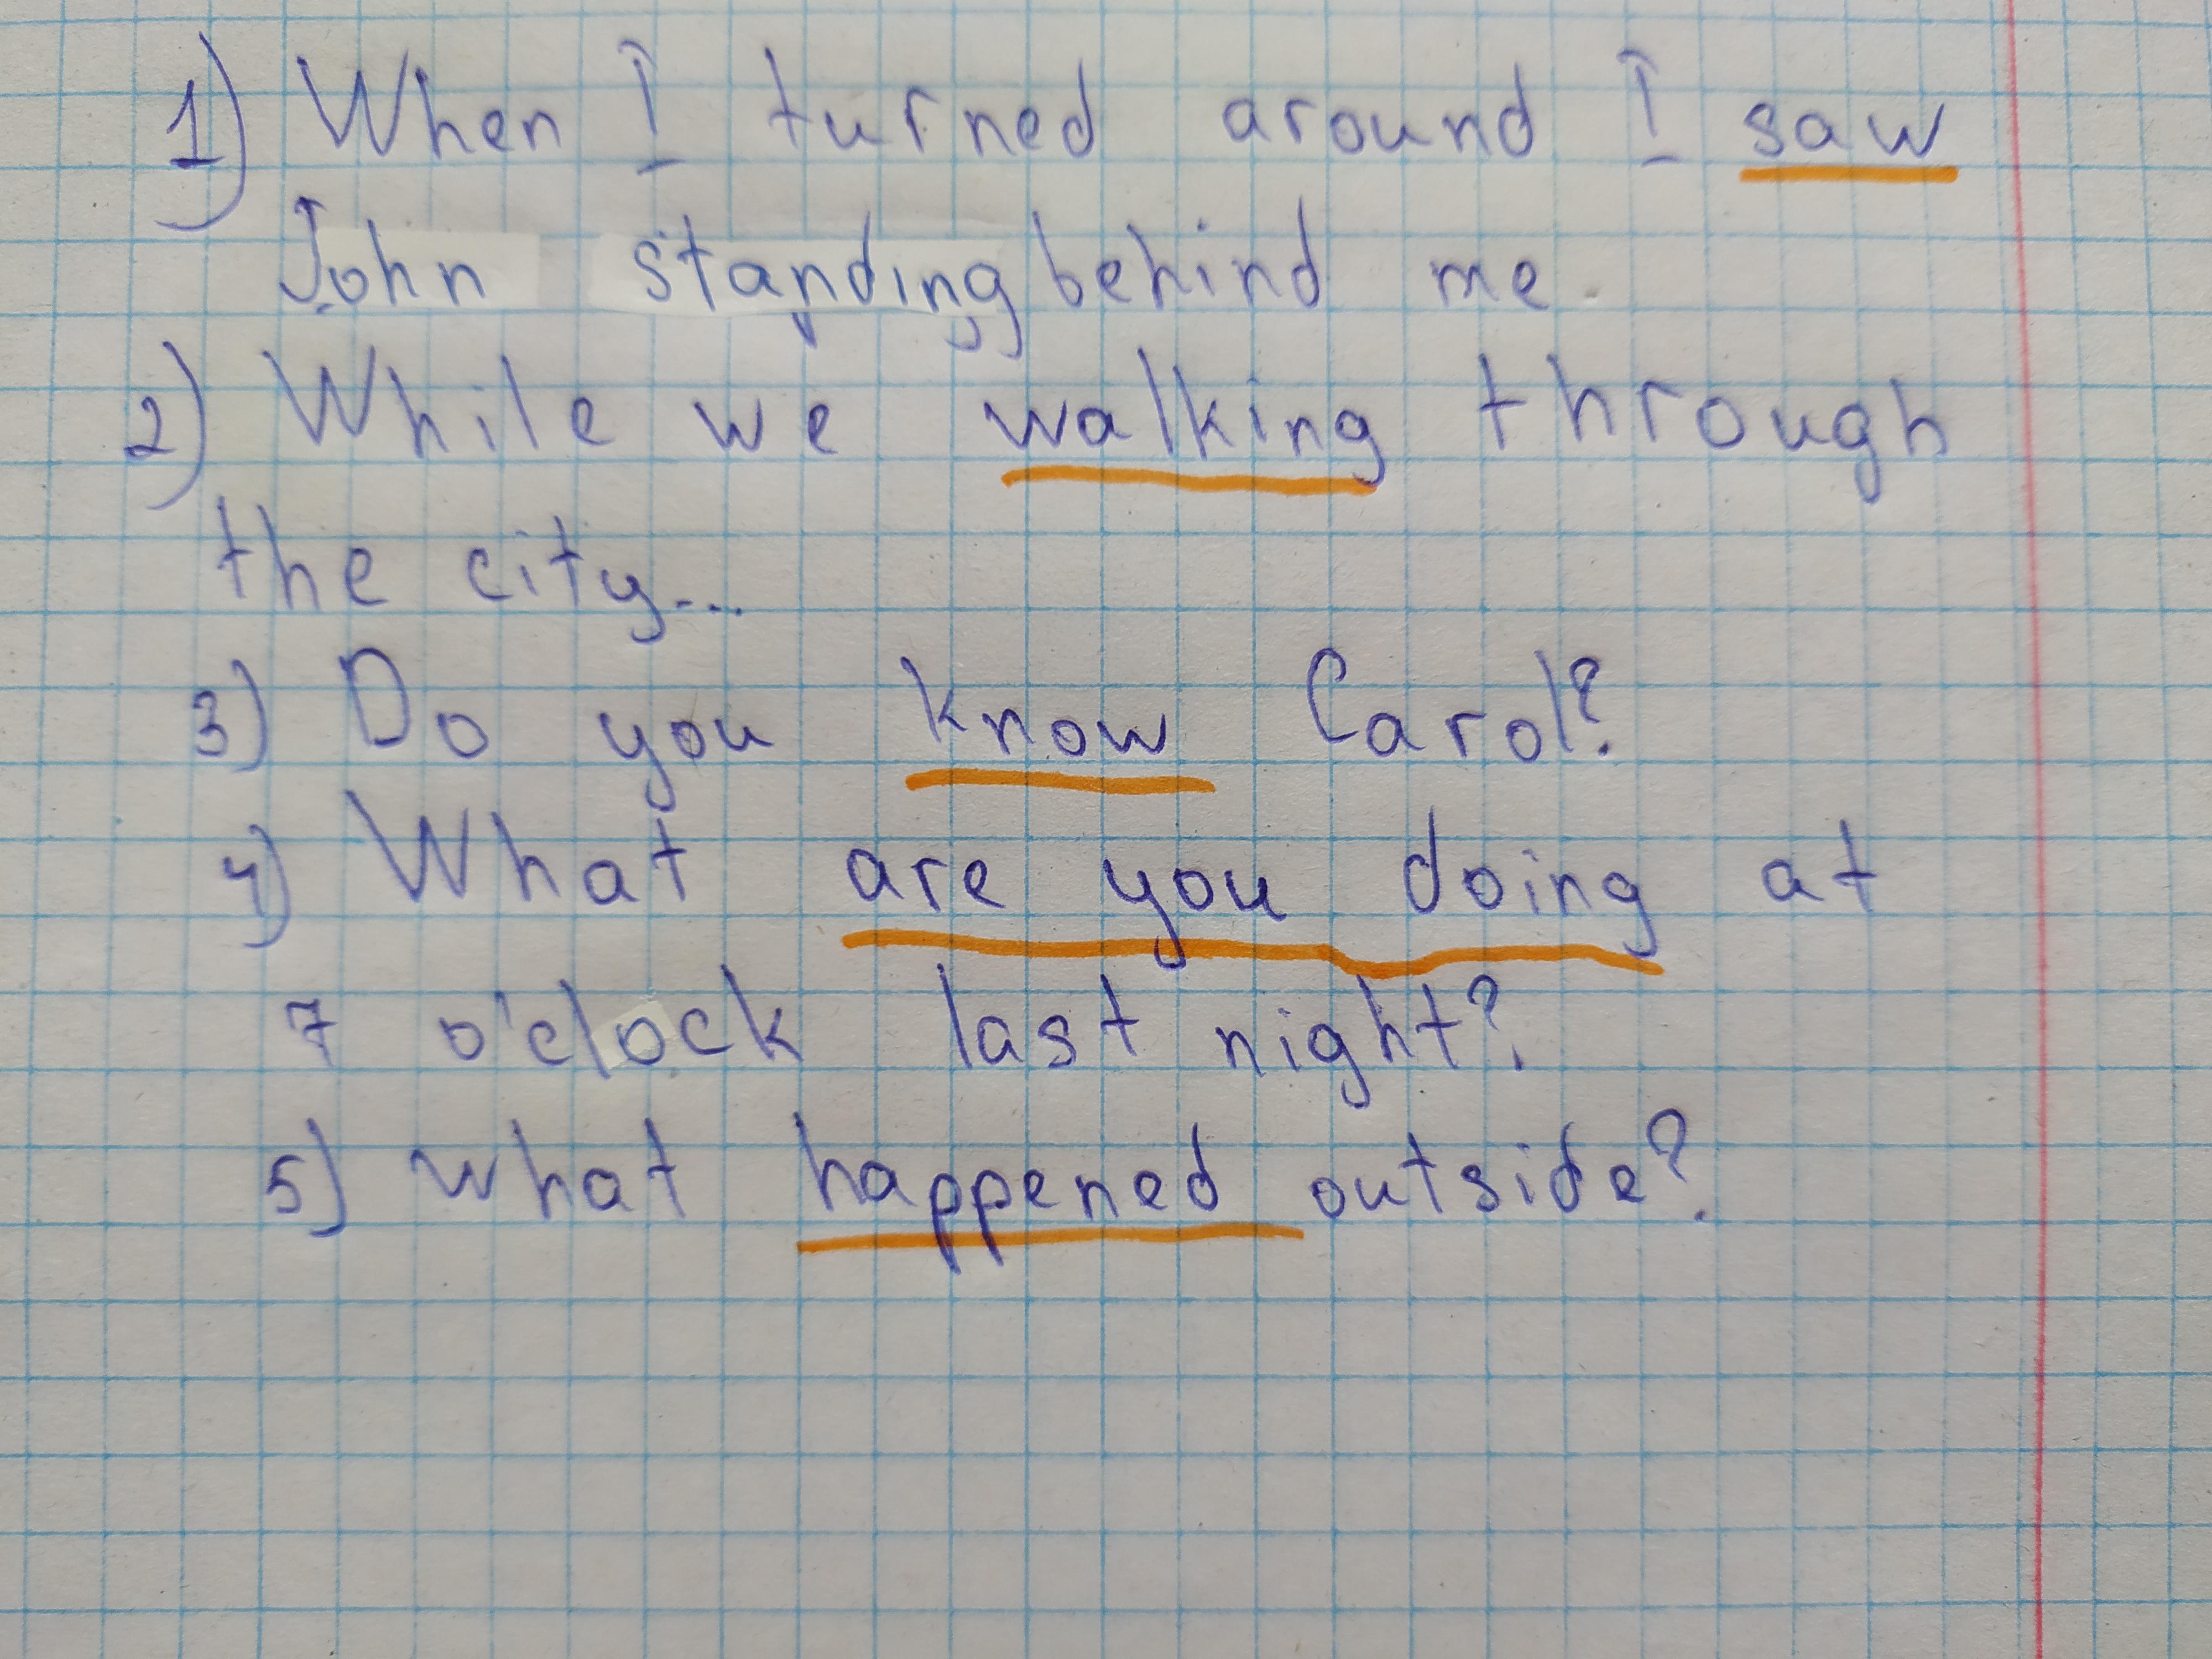 1) When I turned around I saw
John standing behind me.
2) While we walking through
the city...
3) Do you know Carol?
4) What are you doing at
7 o'clock last night?
5) what happened outside?